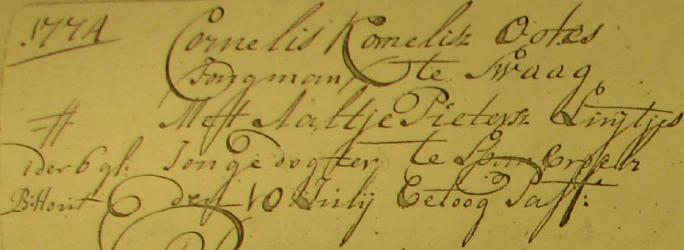 1774
Cornelis Kornelisz Ootes
Jongman, te Swaag
Met Aaltje Pietersz Luijtjes
ider 6 gl: Jonge dogter te
B: Hout den 10 Julij Eetoog Past: